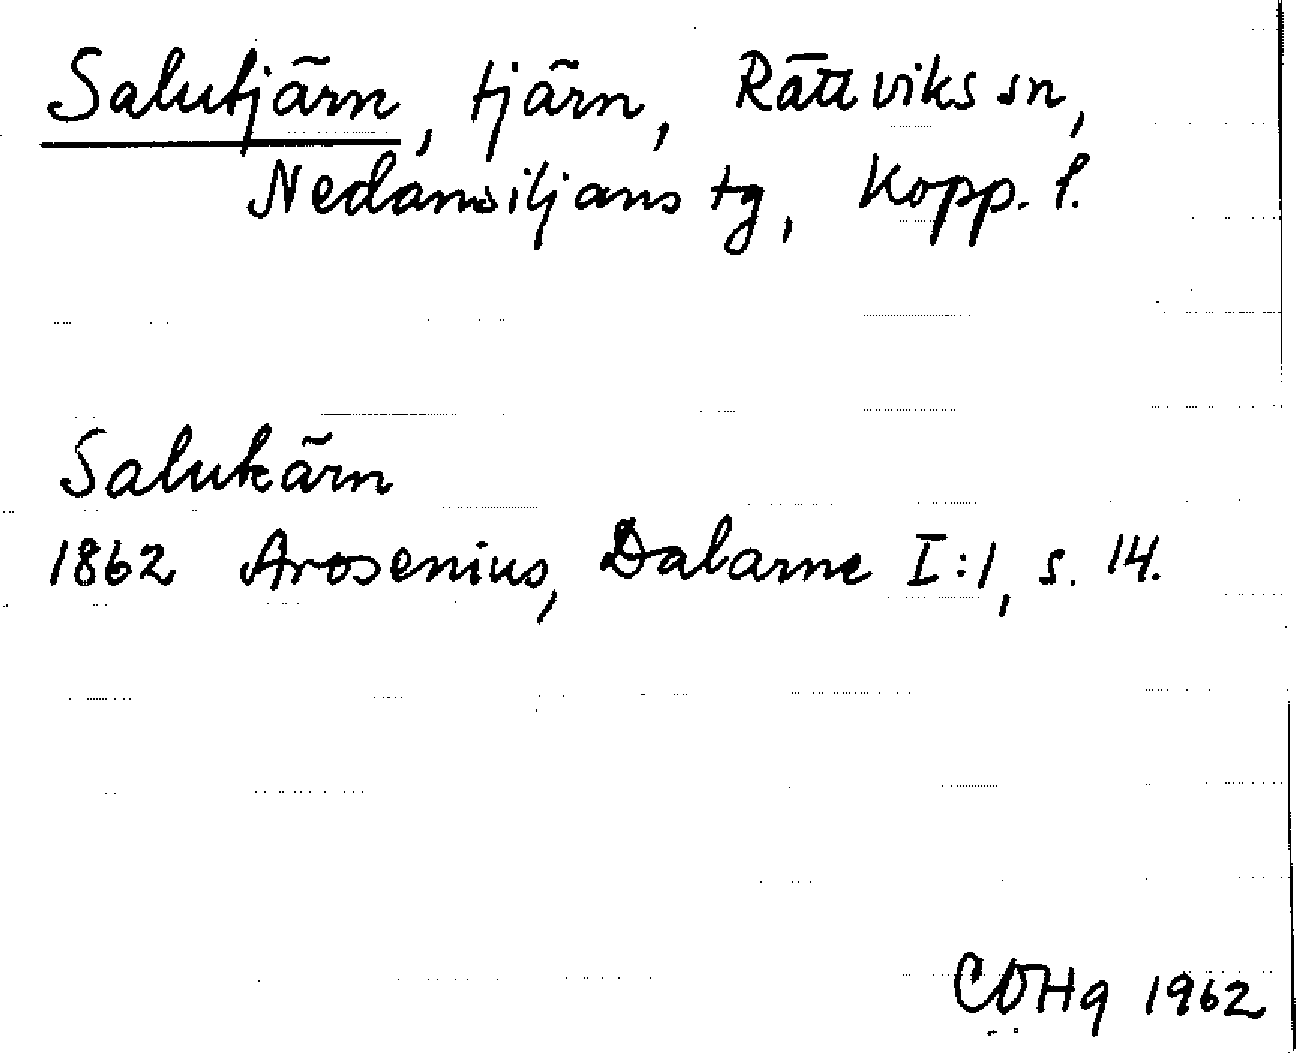 Salutjärn, tjärn, Rättviks sn,
Nedansiljans tg, Kopp. l.
Salukärn
1862 Arosenius, Dalarne I:1, s. 14.
COHg 1962